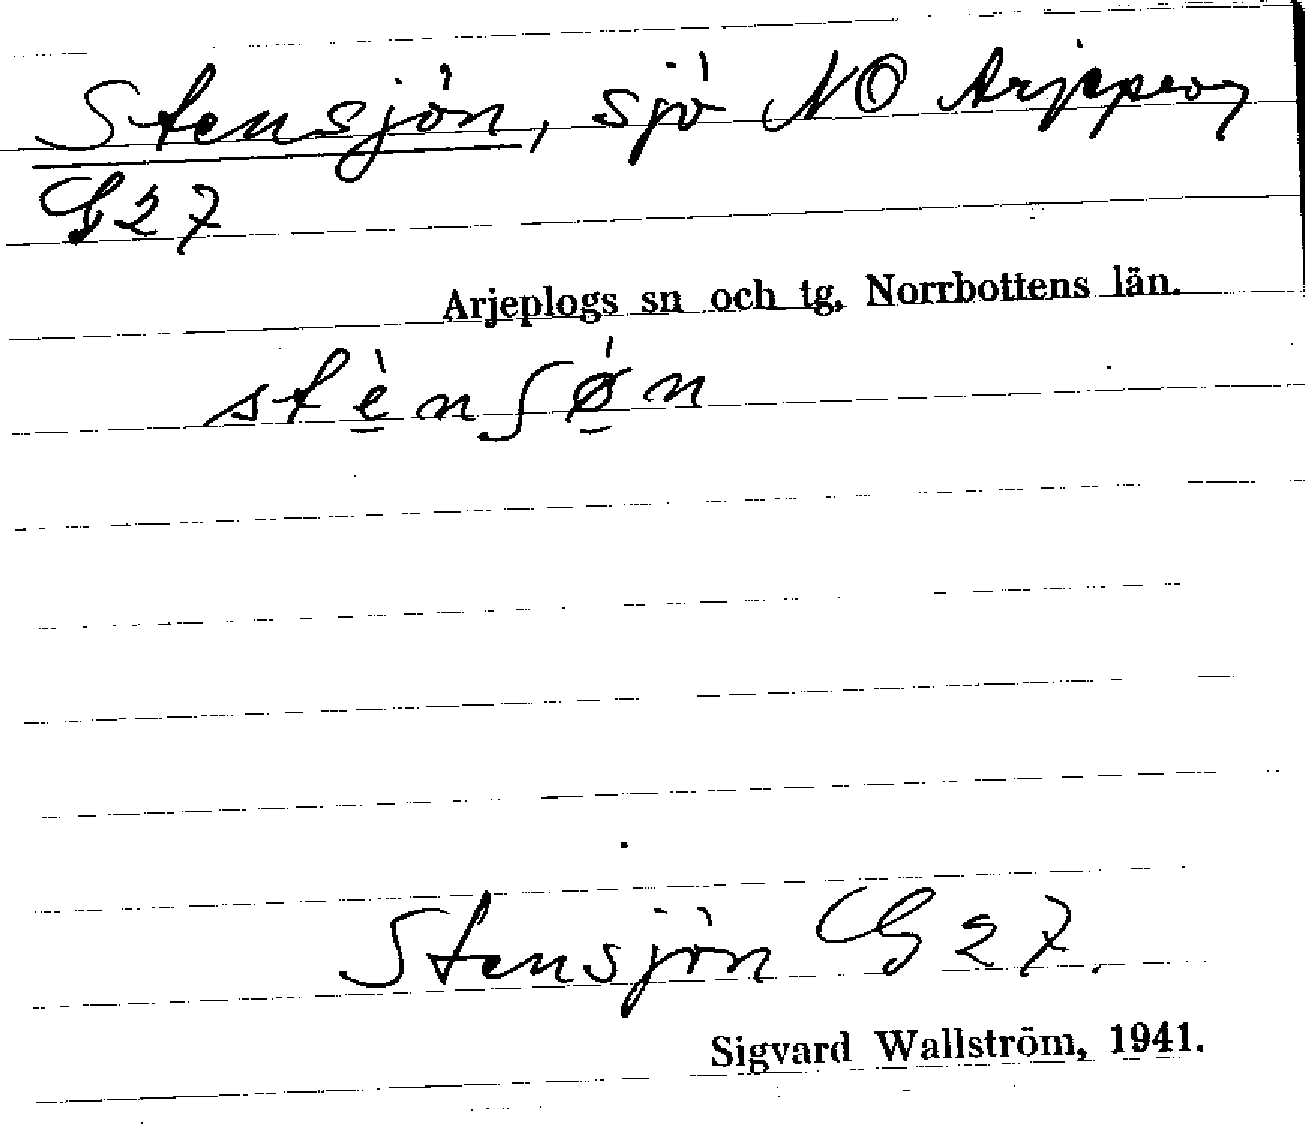 Stensjön, sjö NO Arjeplog
G27
Arjeplogs sn och tg, Norrbottens län.
stè̱nʃǿ̱n
Stensjön G27.
Sigvard Wallström, 1941.